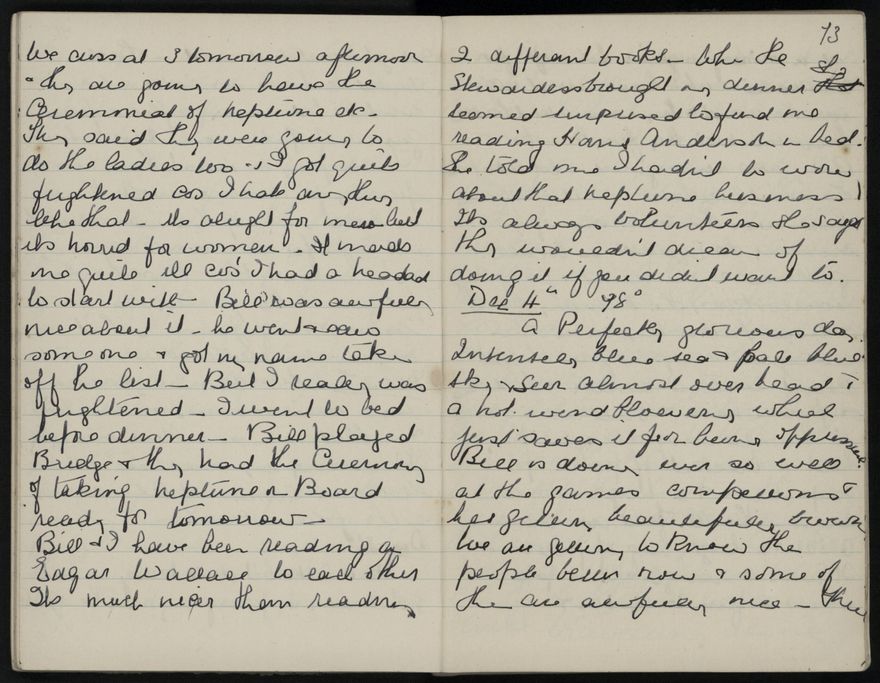 We cross at 3 tomorrow afternoon
& they are going to have the
Ceremonial of neptune etc -
They said they were going to
do the ladies too - & I got quite
frightened cos I hate anything
like that - its alright for men but
its horrid for women - It made
me quite ill cos' I had a headache
to start with - Bill was awfully
nice about it - he went & saw
someone & got my name taken
off the list - But I really was
frightened - I went to bed
before dinner - Bill played
Bridge & they had the Ceremony
of taking neptune on Board
ready for tomorrow -
Bill & I have been reading an
Edgar Wallace to each other
Its much nicer than reading
73
2 different books - When the
Stewardess brought my dinner she
seemed surprised to find me
reading Hans Anderson in bed.
She told me I hadn't to worry
about that neptune business!
Its always volunteers she says
they wouldn't dream of
doing it if you didn't want to.
Dec 4th 98°
A Perfectly glorious day.
Intensely blue sea & pale blue
sky, & sun almost over head &
a hot wind blowing which
just saves it from being oppressive.
Bill is doing ever so well
at the games competitions &
has getting beautifully brown
We are getting to know the
people better now & some of
the are awfully nice -